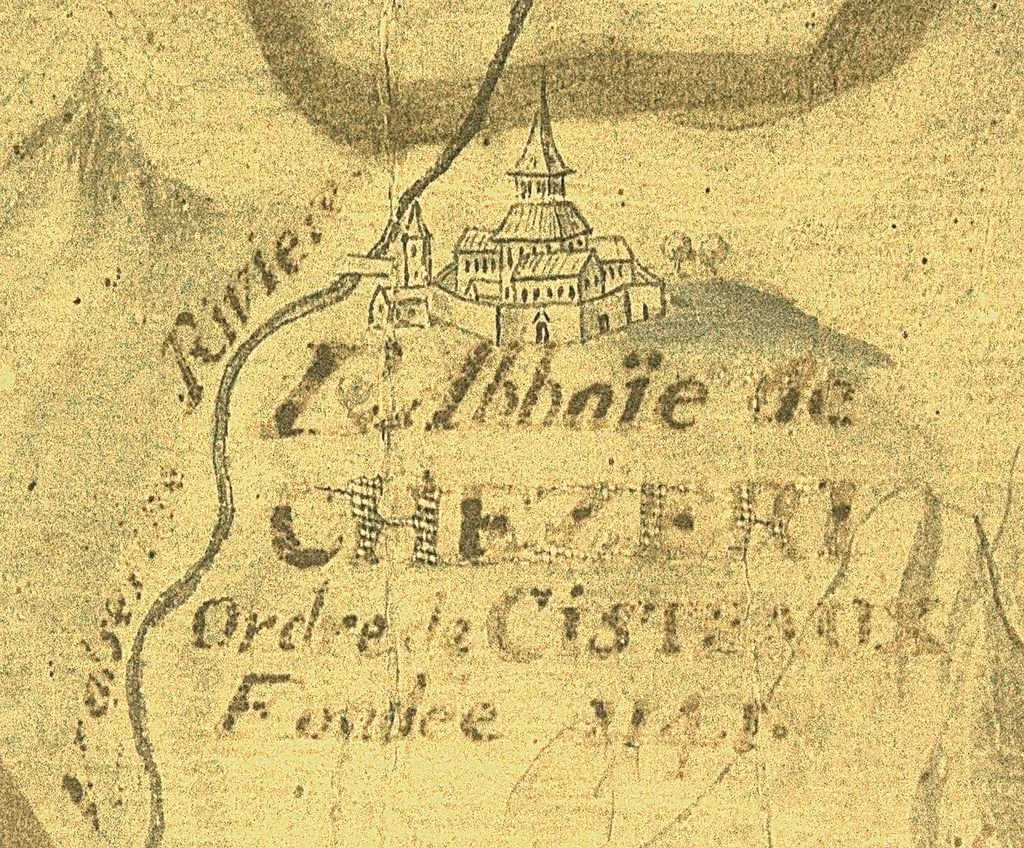 Riviere
L'Abbaïe de
CHEZERI
Ordre de CISTEAUX
Fondee